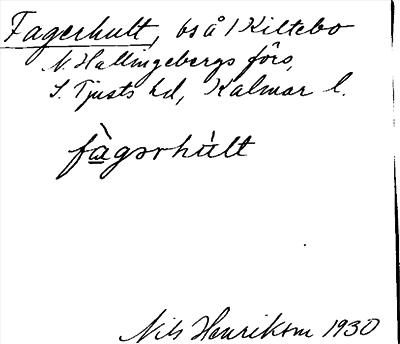 Fagerhult, bs å 1 Kiltebo
N. Hallingebergs förs,
S. Tjusts hd, Kalmar l.
fàgərhúlt
Nils Henrikson 1930